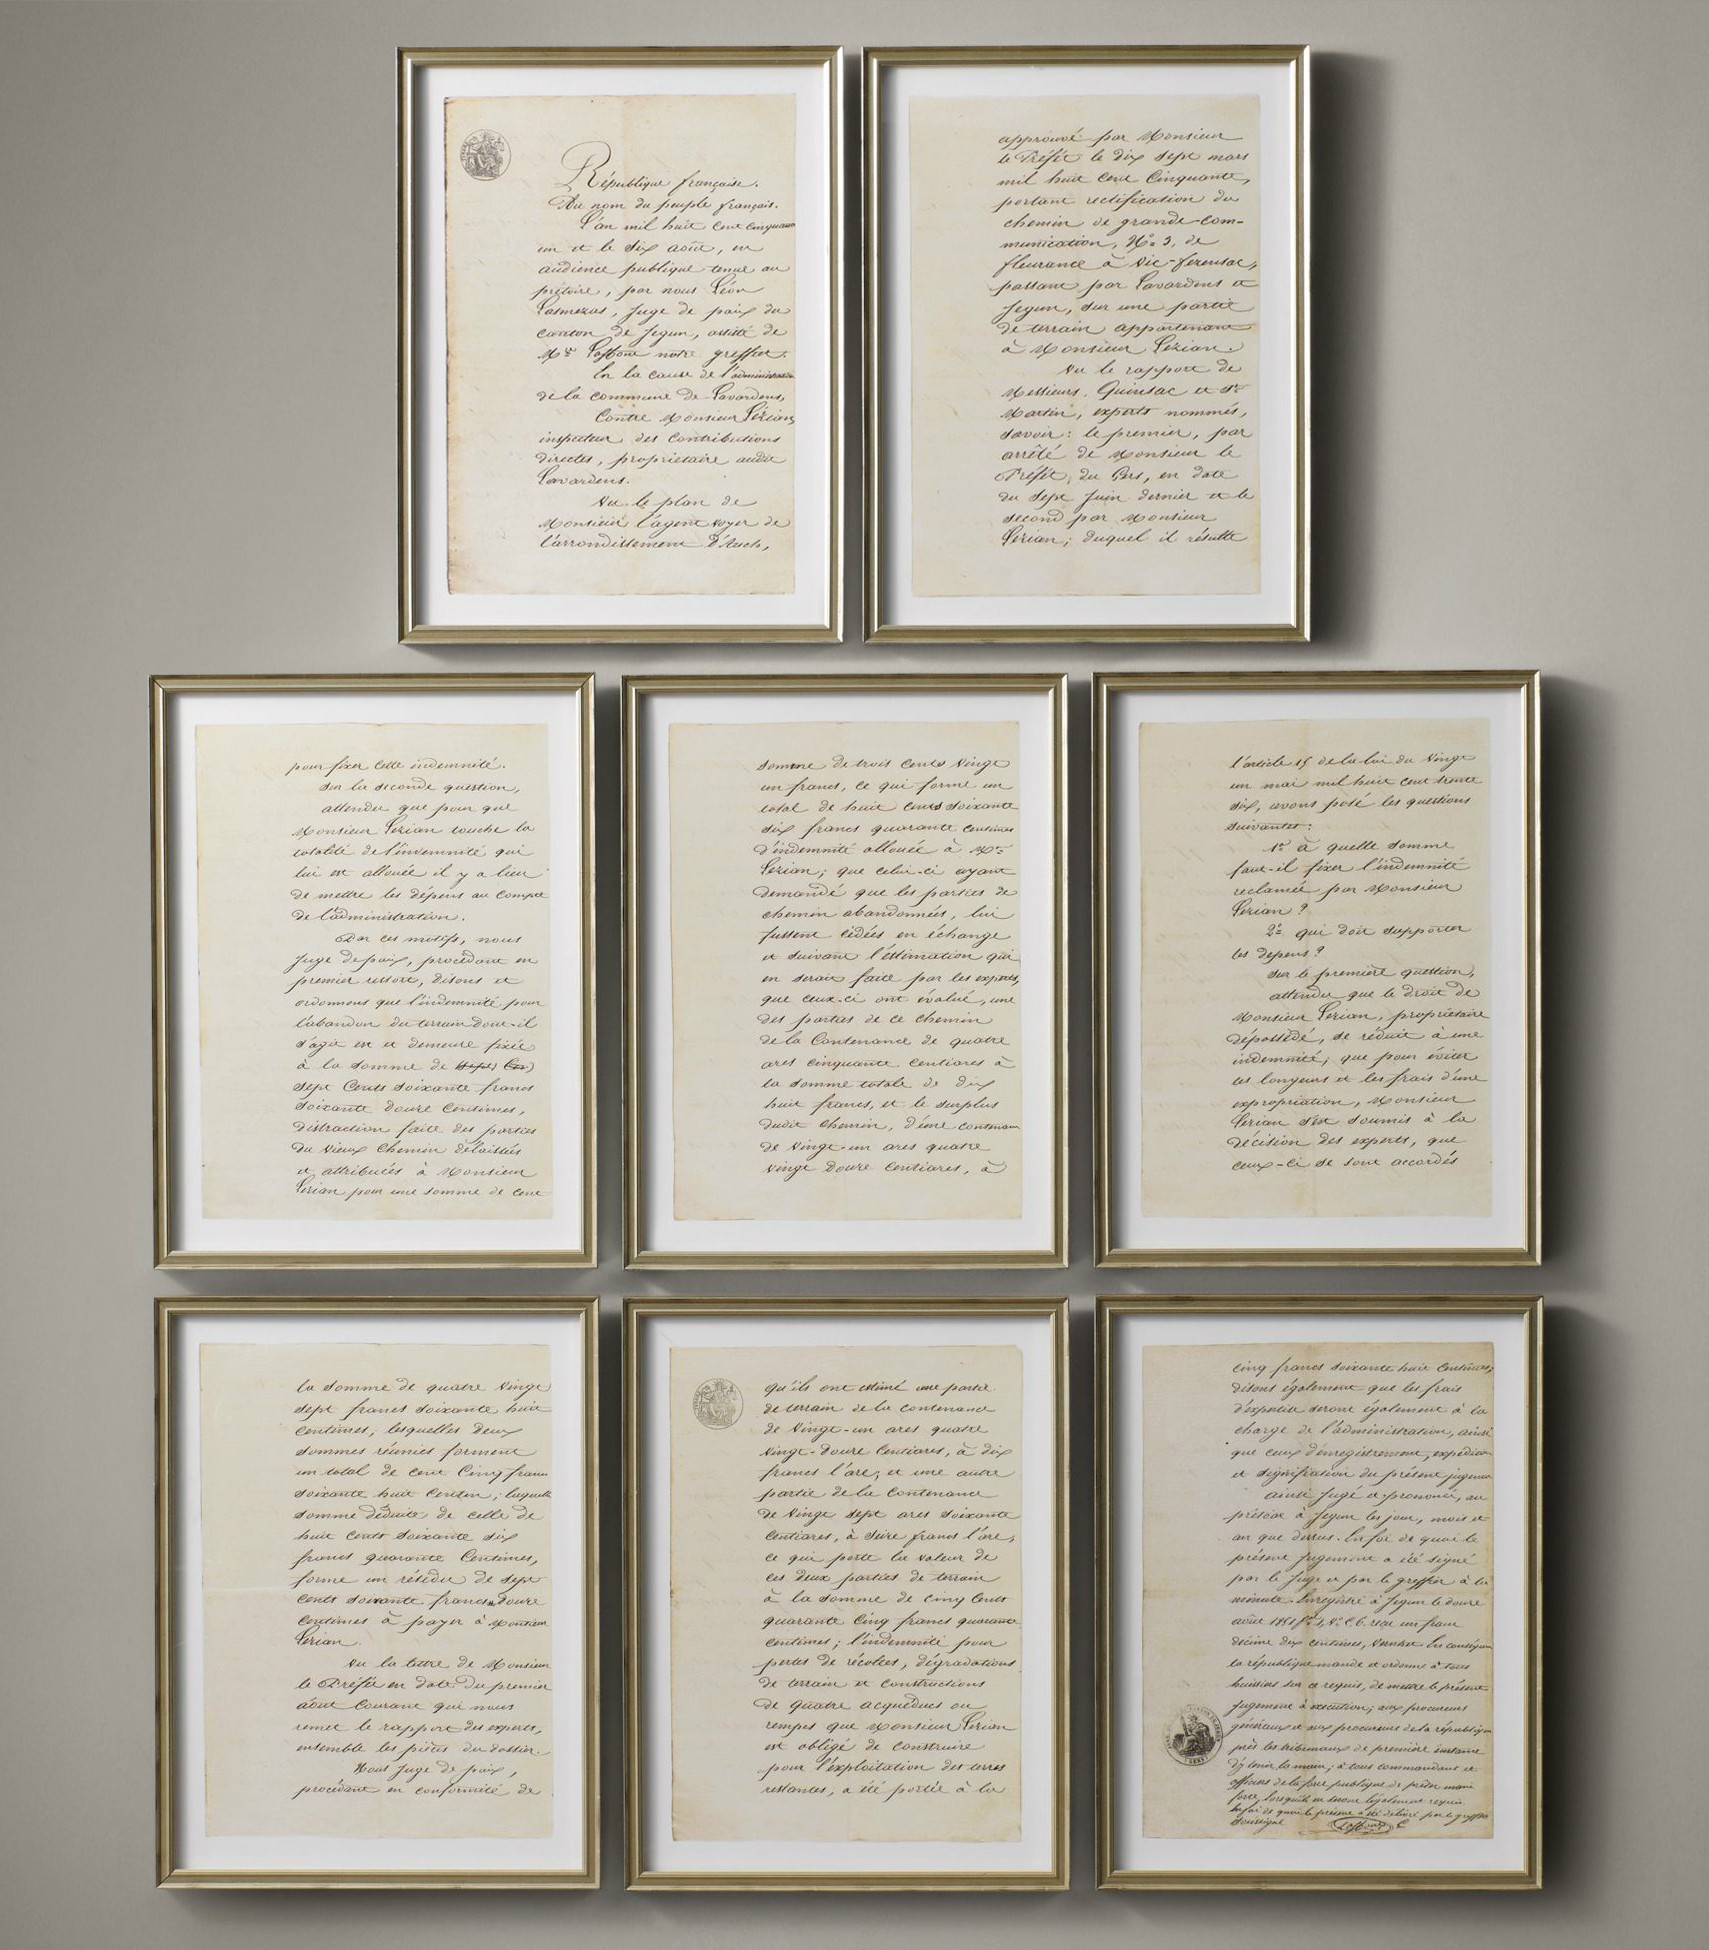 République française.
Au nom du peuple français.
L'an mil huit cent cinquante
un et le six août, en
audience publique tenue au
prétoire, par nous Léon
Lasmezas, Juge de paix du
canton de Jegun, assisté de
Mr notre greffier.
En la cause de l'administration
de la commune de Lavardens,
Contre Monsieur Lézian,
inspecteur des Contributions
directes, propriétaire audit
Lavardens.
Vu le plan de
Monsieur l'agent voyer de
l'arrondissement d'Auch,
approuvé par Monsieur
le Préfet le dix sept mars
mil huit cent cinquante,
portant rectification du
chemin de grande com-
munication, No 3, de
fleurance à Vic-fezensac,
passant par Lavardens et
Jegun, sur une partie
de terrain appartenant
à Monsieur Lézian.
Vu le rapport de
Messieurs Quinsac et St
Martin, experts nommés,
savoir: le premier, par
arrêté de Monsieur le
Préfet du Gers, en date
du sept Juin dernier et le
second par Monsieur
Lézian; duquel il résulte
pour fixer cette indemnité.
Sur la seconde question,
attendu que pour que
Monsieur Lézian touche la
totalité de l'indemnité qui
lui est allouée il y a lieu
de mettre les dépens au compte
de l'administration.
Par ces motifs, nous
Juge de paix, procédant en
premier ressort, disons et
ordonnons que l'indemnité pour
l'abandon du terrain dont il
s'agit est et demeure fixée
à la somme de
sept Cents soixante francs
soixante douze Centimes,
distraction faite des parties
du vieux Chemin délaissées
et attribuées à Monsieur
Lézian pour une somme de cent
somme de trois cents vingt
un francs, ce qui forme un
total de huit cents soixante
six francs quarante centimes
d'indemnité allouée à Mr
Lézian; que celui-ci ayant
demandé que les parties de
chemin abandonnées, lui
fussent cédées en échange
et suivant l'estimation qui
en serait faite par les experts,
que ceux-ci ont évalué, une
des parties de ce chemin
de la Contenance de quatre
ares cinquante centiares à
la somme totale de dix
huit francs, et le surplus
dudit chemin, d'une contenance
de vingt-un ares quatre
vingt douze Centiares, à
l'article 15 de la loi du vingt
un mai mil huit cent trente
six, avons posé les questions
suivantes:
1o à quelle somme
faut-il fixer l'indemnité
réclamée par Monsieur
Lézian?
2o qui doit supporter
les dépens?
Sur le première question,
attendu que le droit de
Monsieur Lézian, propriétaire
dépossédé, se réduit à une
indemnité; que pour éviter
les longeurs et les frais d'une
expropriation, Monsieur
Lézian s'est soumis à la
décision des experts, que
ceux-ci se sont accordés
la somme de quatre vingt
sept francs soixante huit
centimes, lesquelles deux
sommes réunies forment
un total de cent cinq francs
soixante huit Centimes; laquelle
somme déduite de celle de
huit cents soixante six
francs quarante Centimes,
forme un résidu de sept
cents soixante francs douze
Centimes à payer à Monsieur
Lézian.
Vu la lettre de Monsieur
le Préfet en date du premier
août courant qui nous
remet le rapport des experts,
ensemble les pièces du dossier.
Nous Juge de paix,
procédant en conformité de
qu'ils ont estimé une partie
de terrain de la contenance
de vingt-un ares quatre
vingt-douze Centiares, à dix
francs l'are; et une autre
partie de la Contenance
de vingt sept ares soixante
Centiares, à seize francs l'are,
ce qui porte la valeur de
ces deux parties de terrain
à la somme de cinq Cents
quarante cinq francs quarante
centimes; l'indemnité pour
pertes de récoltes, dégradations
de terrain et constructions
de quatre acqueducs ou
rempes que Monsieur Lézian
est obligé de construire
pour l'exploitation des terres
restantes, a été portée à la
cinq francs soixante huit Centimes;
disons également que les frais
d'expertise seront également à la
charge de l'administration, ainsi
que ceux d'enregistrement, expédition
et signification du présent jugement
ainsi Jugé et prononcé, au
prétoire à Jegun les jour, mois et
an que dessus. En foi de quoi le
présent Jugement a été signé
par le Juge et par le greffier à la
minute. Enregistré à Jegun le douze
août 1851 reçu un franc
décime dix centimes, En conséquence
la république mande et ordonne à tous
huissiers sur ce requis, de mettre le présent
Jugement à exécution; aux procureurs
généraux et aux procureurs de la république
près les tribunaux de première instance
d'y tenir la main; à tous commandants et
officiers de la force publique de prêter main
forte lorsqu'ils en seront légalement requis.
En foi de quoi le présent a été délivré par le greffier
soussigné